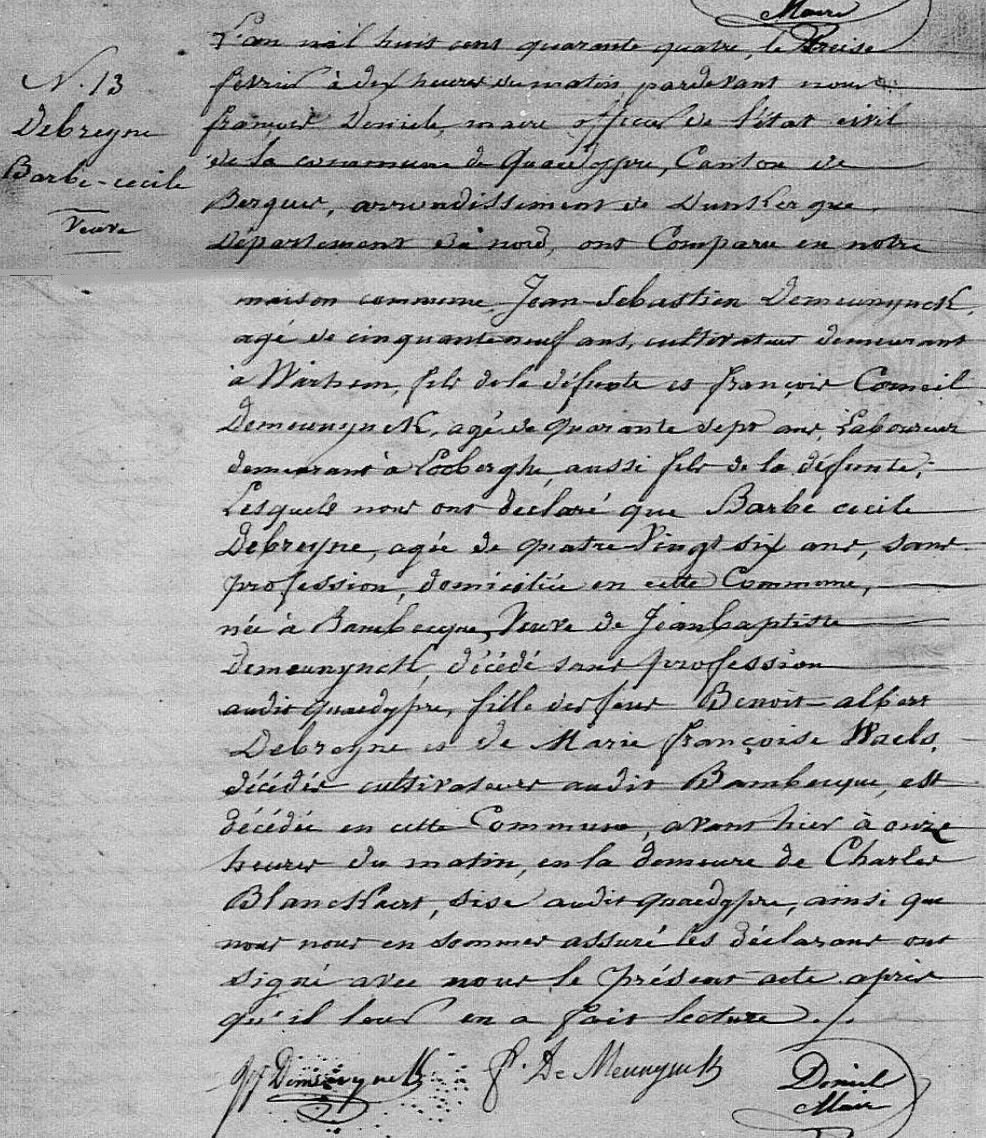 Maire
L'an mil huit cent quarante quatre, le treise
fevrier à dix heures du matin, pardevant nous
françois Deniele, maire officier de l'état civil
de la commune de Quaedypre, Canton de
Bergues, arrondissement de Dunkerque
Département du nord, ont Comparu en notre
N. 13
Debreyne
Barbe-cecile
Veuve
maison commune, Jean-Sebastien Demeunynck,
agé de cinquante neuf ans, cultivateur demeurant
à Warhem, fils de la défunte et françois Corneil
Demeunynck, agé de quarante sept ans, Laboureur
demeurant à Looberghe, aussi fils de la défunte;
Lesquels nous ont declaré que Barbe cecile
Debreyne, agée de quatre-Vingt six ans, sans
profession, domiciliée en cette Commune,
née à Bambecque, Veuve de Jeanbaptiste
Demeunynck, décédé sans profession
audit quaedypre, fille des feus Benoit-albert
Debreyne et de Marie françoise Waels,
décédés cultivateurs audit Bambecque, est
décédée en cette Commune, avant hier à onze
heures du matin, en la demeure de Charles
Blanckaert, sise audit quaedypre, ainsi que
nous nous en sommes assuré les déclarans ont
signé avec nous le présent acte après
qu'il leur en a fait lecture ./.
Demeunynck f. De Meunynck Deniel
Maire